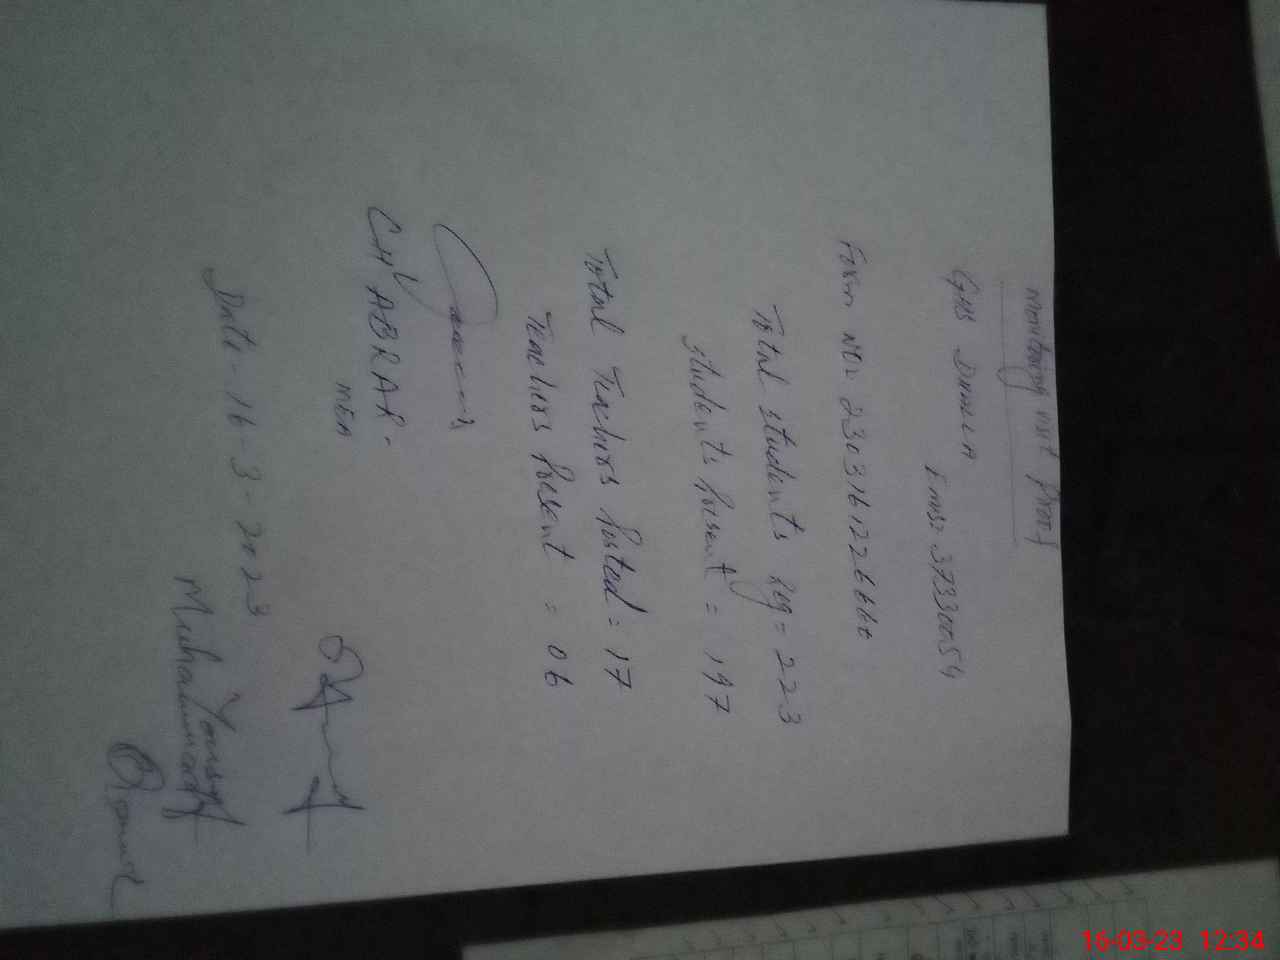 Monitoring visit Proof
GHS
Emis: 37330054
Form No: 230316122666
Total students Reg = 223
students Present = 197
Total Teachers Posted = 17
Teachers Present = 06
CH ABRAR
MEA
Date - 16-3-2023
Muhammad
Yousaf
16-03-23 12:34